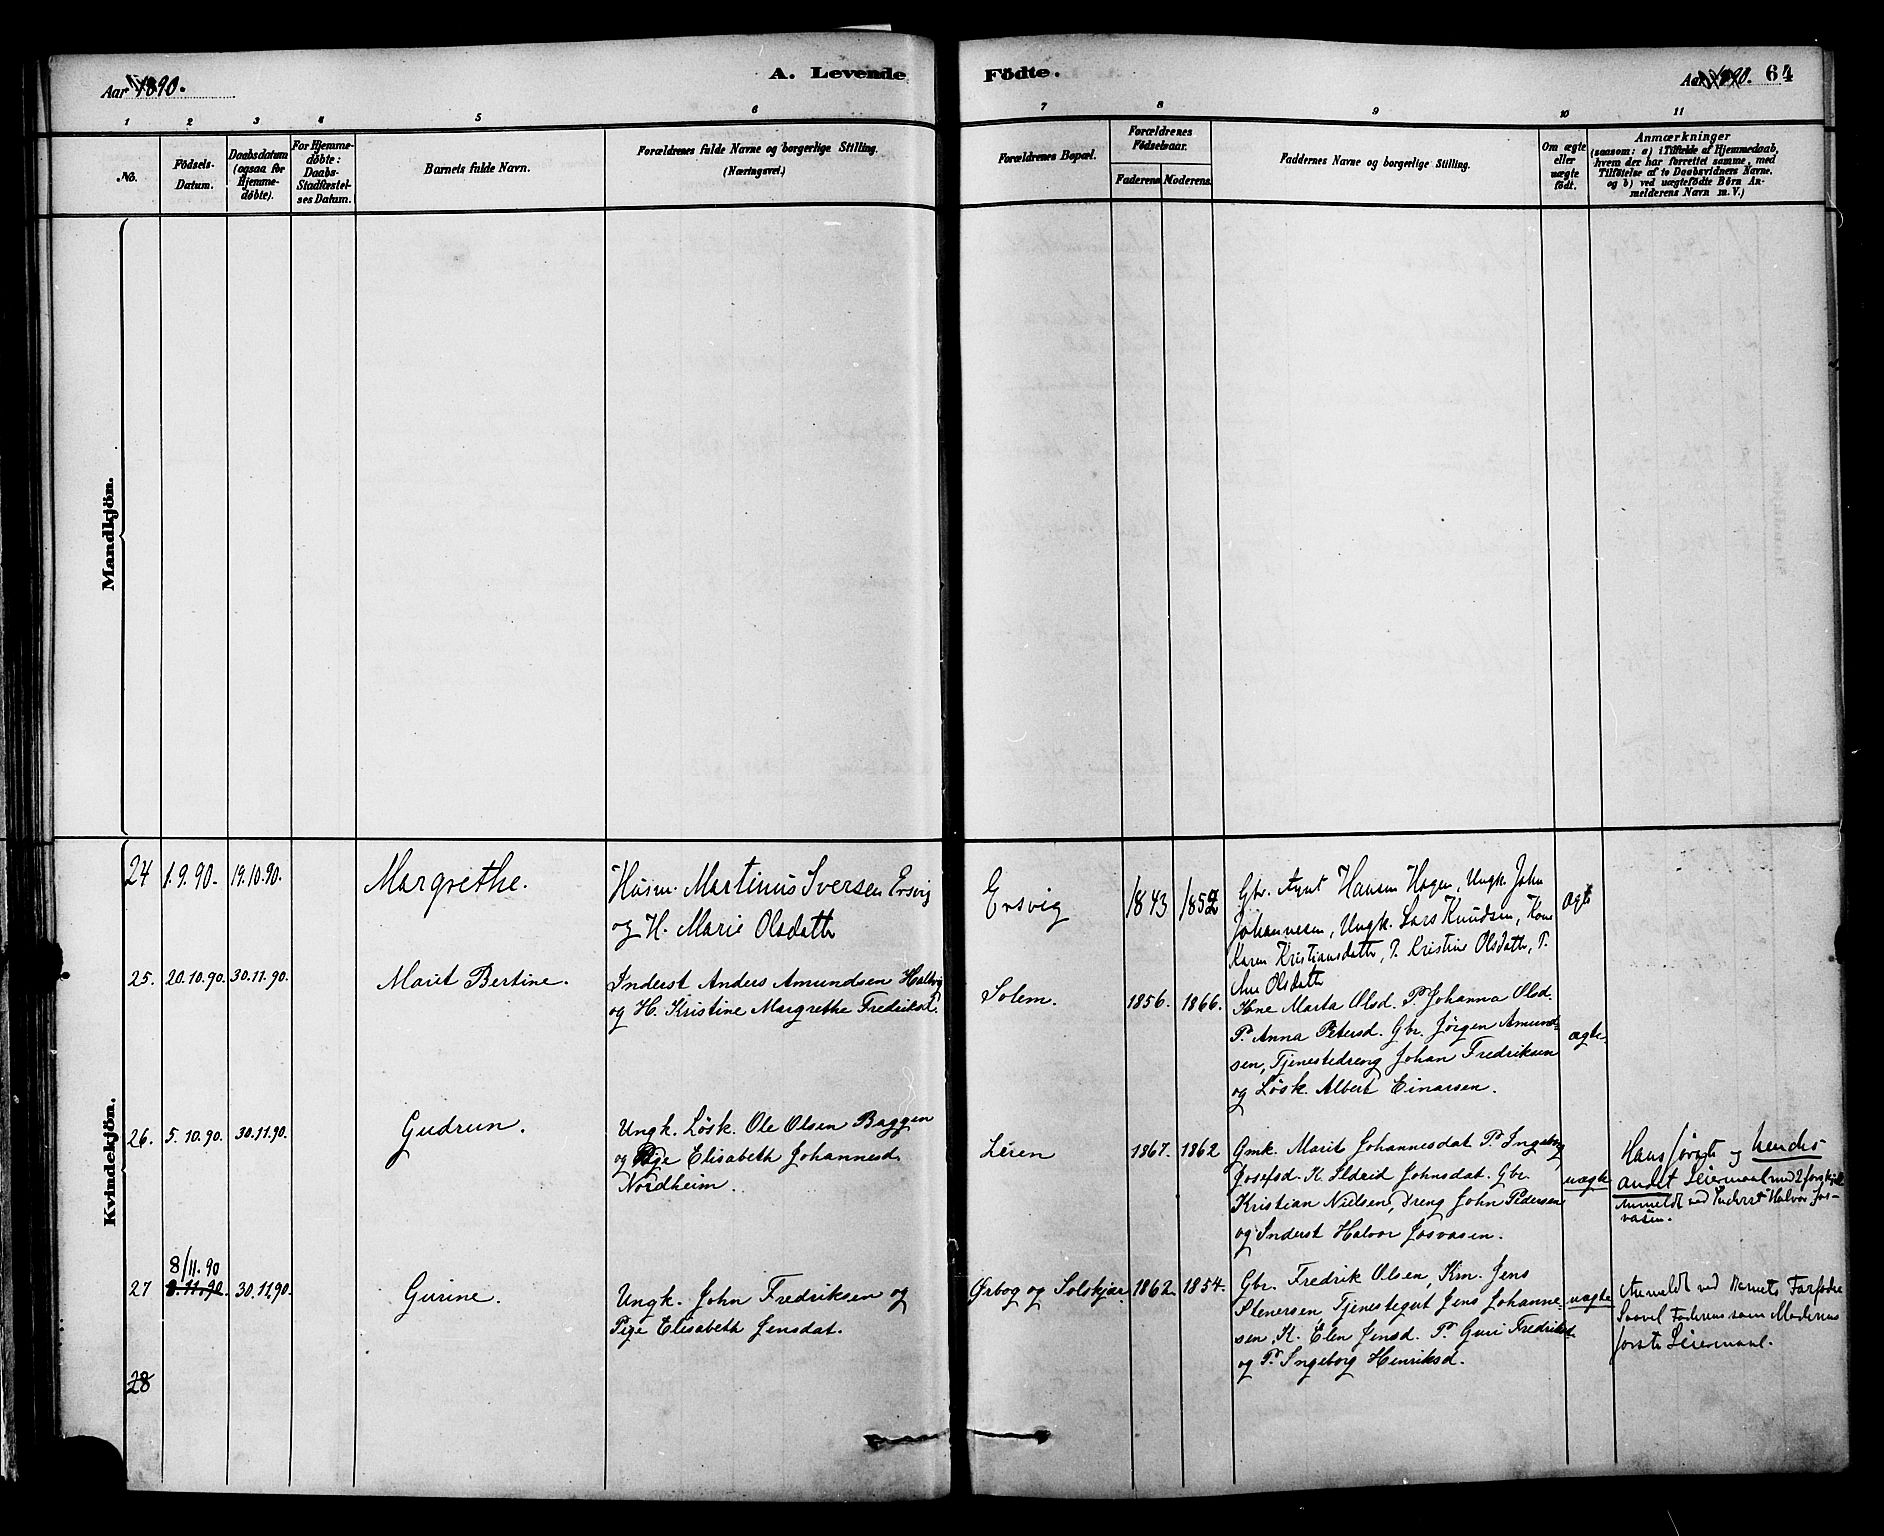 Aar 1890.
A. Levende
Födte.
Aar 1890. 64
1 2 3 4 5 6 7 8 9 10 11
No.
Födsels-
Datum.
Daabsdatum
(ogsaa for
Hjemme-
døbte).
For Hjemme-
døbte:
Daabs-
Stadfæstel-
ses Datum.
Barnets fulde Navn.
Forældrenes fulde Navne og borgerlige Stilling.
(Næringsvei.)
Forældrenes Bopæl.
Forældrenes
Födselsaar.
Faderens. Moderens.
Faddernes Navne og borgerlige Stilling.
Om ægte
eller
uægte
født.
Anmærkninger
(saasom: a) i Tilfælde af Hjemmedaab,
hvem der har forrettet samme, med
Tilföielse af to Daabsvidners Navne.
og b) ved uægtefødte Børn An-
melderens Navn m. V.)
Mandkjön.
Kvindekjön.
24 1.9.90. 19.10.90. Margrethe.
Husm. Martinus Iversen Ersvig
og H. Marie Olsdatte
Ersvig 1843 1852
Gbr. Hansen Hagen, Ungk. John
Johannesen, Ungk. Lars Knudsen, Kone
Karen Kristiansdatte, P. Kristine Olsdatte, P.
Ane Olsdatte
ægte
25. 20.10.90. 30.11.90. Marit Bertine.
Inderst Anders Amundsen
og H. Kristine Margrethe Fredriksd.
Solem. 1856. 1866.
Kone Marta Olsd. P. Johanna Olsd.
P. Anna Petersd. Gbr. Jørgen Amund-
sen, Tjenestedreng Johan Fredriksen
og Løsk. Albert Einarsen.
ægte
26. 5.10.90. 30.11.90. Gudrun.
Ungk. Løsk. Ole Olsen Baggen
og Pige Elisabeth Johannesd.
Nordheim.
Leren 1867. 1862
Gmk. Marit Johannesdat P. Ingeborg
Josefsd. K. Ildrid Johnsdat. Gbr.
Kristian Nielsen, Dreng John Pedersen
og Inderst Halvor Josvasen.
uægte
Hans første og hendes
andet Leiermaal med 2
Anmeldt ved Inderst Halvor Jos-
vasen.
27 8/11.90
8.11.90. 30.11.90. Gurine.
Ungk. John Fredriksen og
Pige Elisabeth Jensdat.
Ørbog og Solskjær 1862 1854.
Gbr. Fredrik Olsen, Km. Jens
Stenersen, Tjenestegut Jens Johanne-
sen, K. Elen Jensd. P. Guri Fredriksd.
og P. Ingeborg Henriksd.
uægte
Anmeldt ved Barnets Farfader
Saavel Faderens som Moderens
første Leiermaal.
28